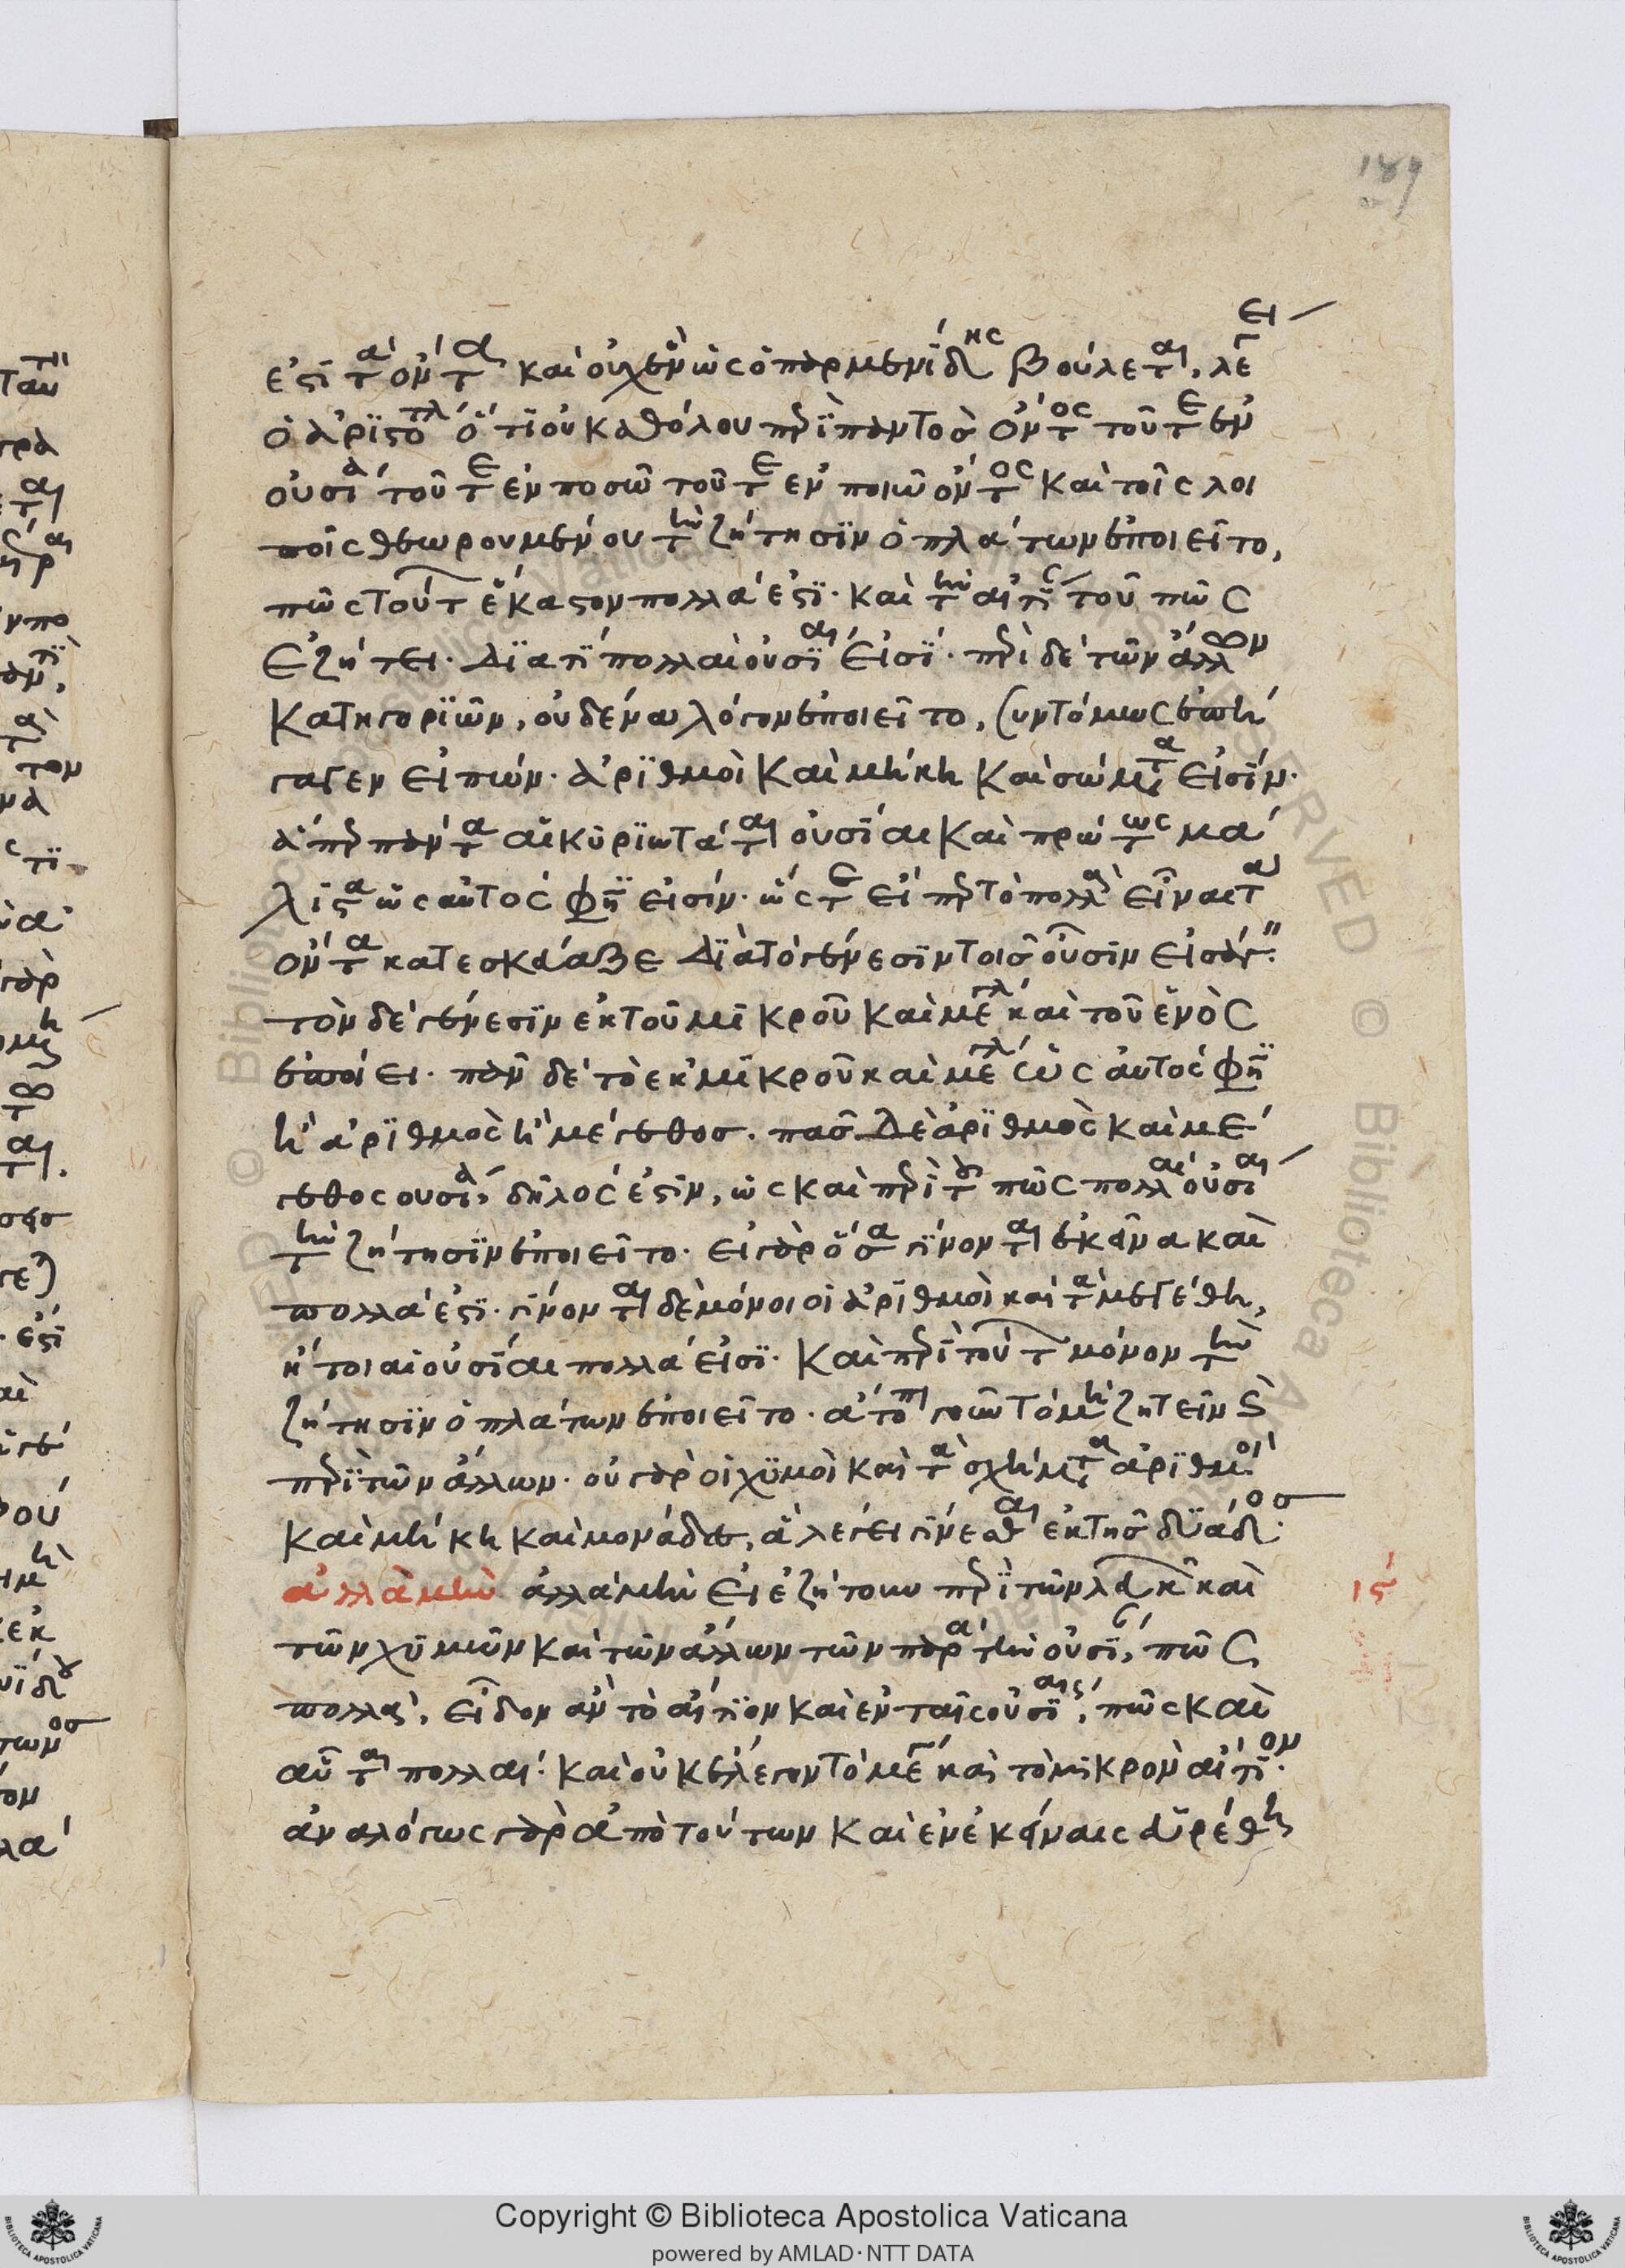 189
ἐστὶ τὰ ὄντα καὶ οὐχ ἓν ὡς ὁ παρμενίδης βούλεται, λέγει
ὁ ἀριστοτέλης ὅτι οὐ καθόλου περὶ παντὸς ὄντος τοῦ τε ἐν
οὐσία τοῦ τε ἐν ποσῶ τοῦ τε ἐν ποιῶ ὄντος καὶ τοῖς λοι
ποῖς θεωρουμένου τὴν ζήτησιν ὁ πλάτων ἐποιεῖτο,
πῶς τούτων ἕκαστον πολλά ἐστι· καὶ τὴν αἰτίαν τοῦ πῶς
ἐζήτει. διατί πολλαὶ οὐσίαι εἰσί· περὶ δὲ τῶν ἄλλων
κατηγοριῶν, οὐδένα λόγον ἐποιεῖτο, συντόμως ἐπή
γαγεν εἰπών· ἀριθμοὶ καὶ μήκη καὶ σώματα εἰσίν.
ἅπερ πάντα αἱ κυριώταται οὐσίαι καὶ πρώτως μά
λιστα ὡς αὐτός φησιν εἰσίν· ὥστε εἴπερ τὸ πολλὰ εἶναι τὰ
ὄντα κατεσκεύαζε διὰ τὸ γένεσιν τοῖς οὖσιν εἰσάγειν
τὸν δὲ γένεσιν ἐκ τοῦ μικροῦ καὶ μεγάλου καὶ τοῦ ἑνὸς
ἐποίει. πᾶν δὲ τὸ ἐκ μικροῦ καὶ μεγάλου ὡς αὐτός φησιν
ἢ ἀριθμὸς ἢ μέγεθος. πᾶς δὲ ἀριθμὸς καὶ μέ
γεθος οὐσία, δῆλός ἐστιν, ὡς καὶ περὶ τοῦ πῶς πολλαὶ οὐσίαι
τὴν ζήτησιν ἐποιεῖτο. εἰ γὰρ ὅσα γίνονται ἐκεῖνα καὶ
πολλά ἐστι. γίνονται δὲ μόνοι οἱ ἀριθμοὶ καὶ τὰ μεγέθη,
ἤτοι αἱ οὐσίαι πολλά εἰσι. καὶ περὶ τούτων μόνον τὴν
ζήτησιν ὁ πλάτων ἐποιεῖτο. ἄτοπον γοῦν τὸ μὴ ζητεῖν καὶ
περὶ τῶν ἄλλων. οὐ γὰρ οἱ χυμοὶ καὶ τὰ σχήματα ἀριθμοί
καὶ μήκη καὶ μονάδες, ἃ λέγει γίνεσθαι ἐκ τῆς δυάδος.
ἀλλὰ μὴν ἀλλὰ μὴν εἰ ἐζήτουν περὶ τῶν λευκῶν καὶ
ιϛ
τῶν χυμῶν καὶ τῶν ἄλλων τῶν παρὰ τὴν οὐσίαν, πῶς
πολλά, εἶδον ἂν τὸ αἴτιον καὶ ἐν ταῖς οὐσίαις, πῶς καὶ
αὗται πολλαί. καὶ οὐκ ἔλεγον τὸ μέγα καὶ τὸ μικρὸν αἴτιον.
ἀναλόγως γὰρ ἀπὸ τούτων καὶ ἐν ἐκείναις εὑρέθη
Copyright © Biblioteca Apostolica Vaticana
powered by AMLAD·NTT DATA